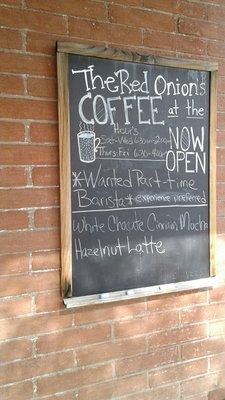 The Red Onion's
COFFEE at the
Hours
NOW
OPEN
* Wanted Part-time
Barista * experience preferred
White Chocolate Cinnamon Mocha
Hazelnut Latte